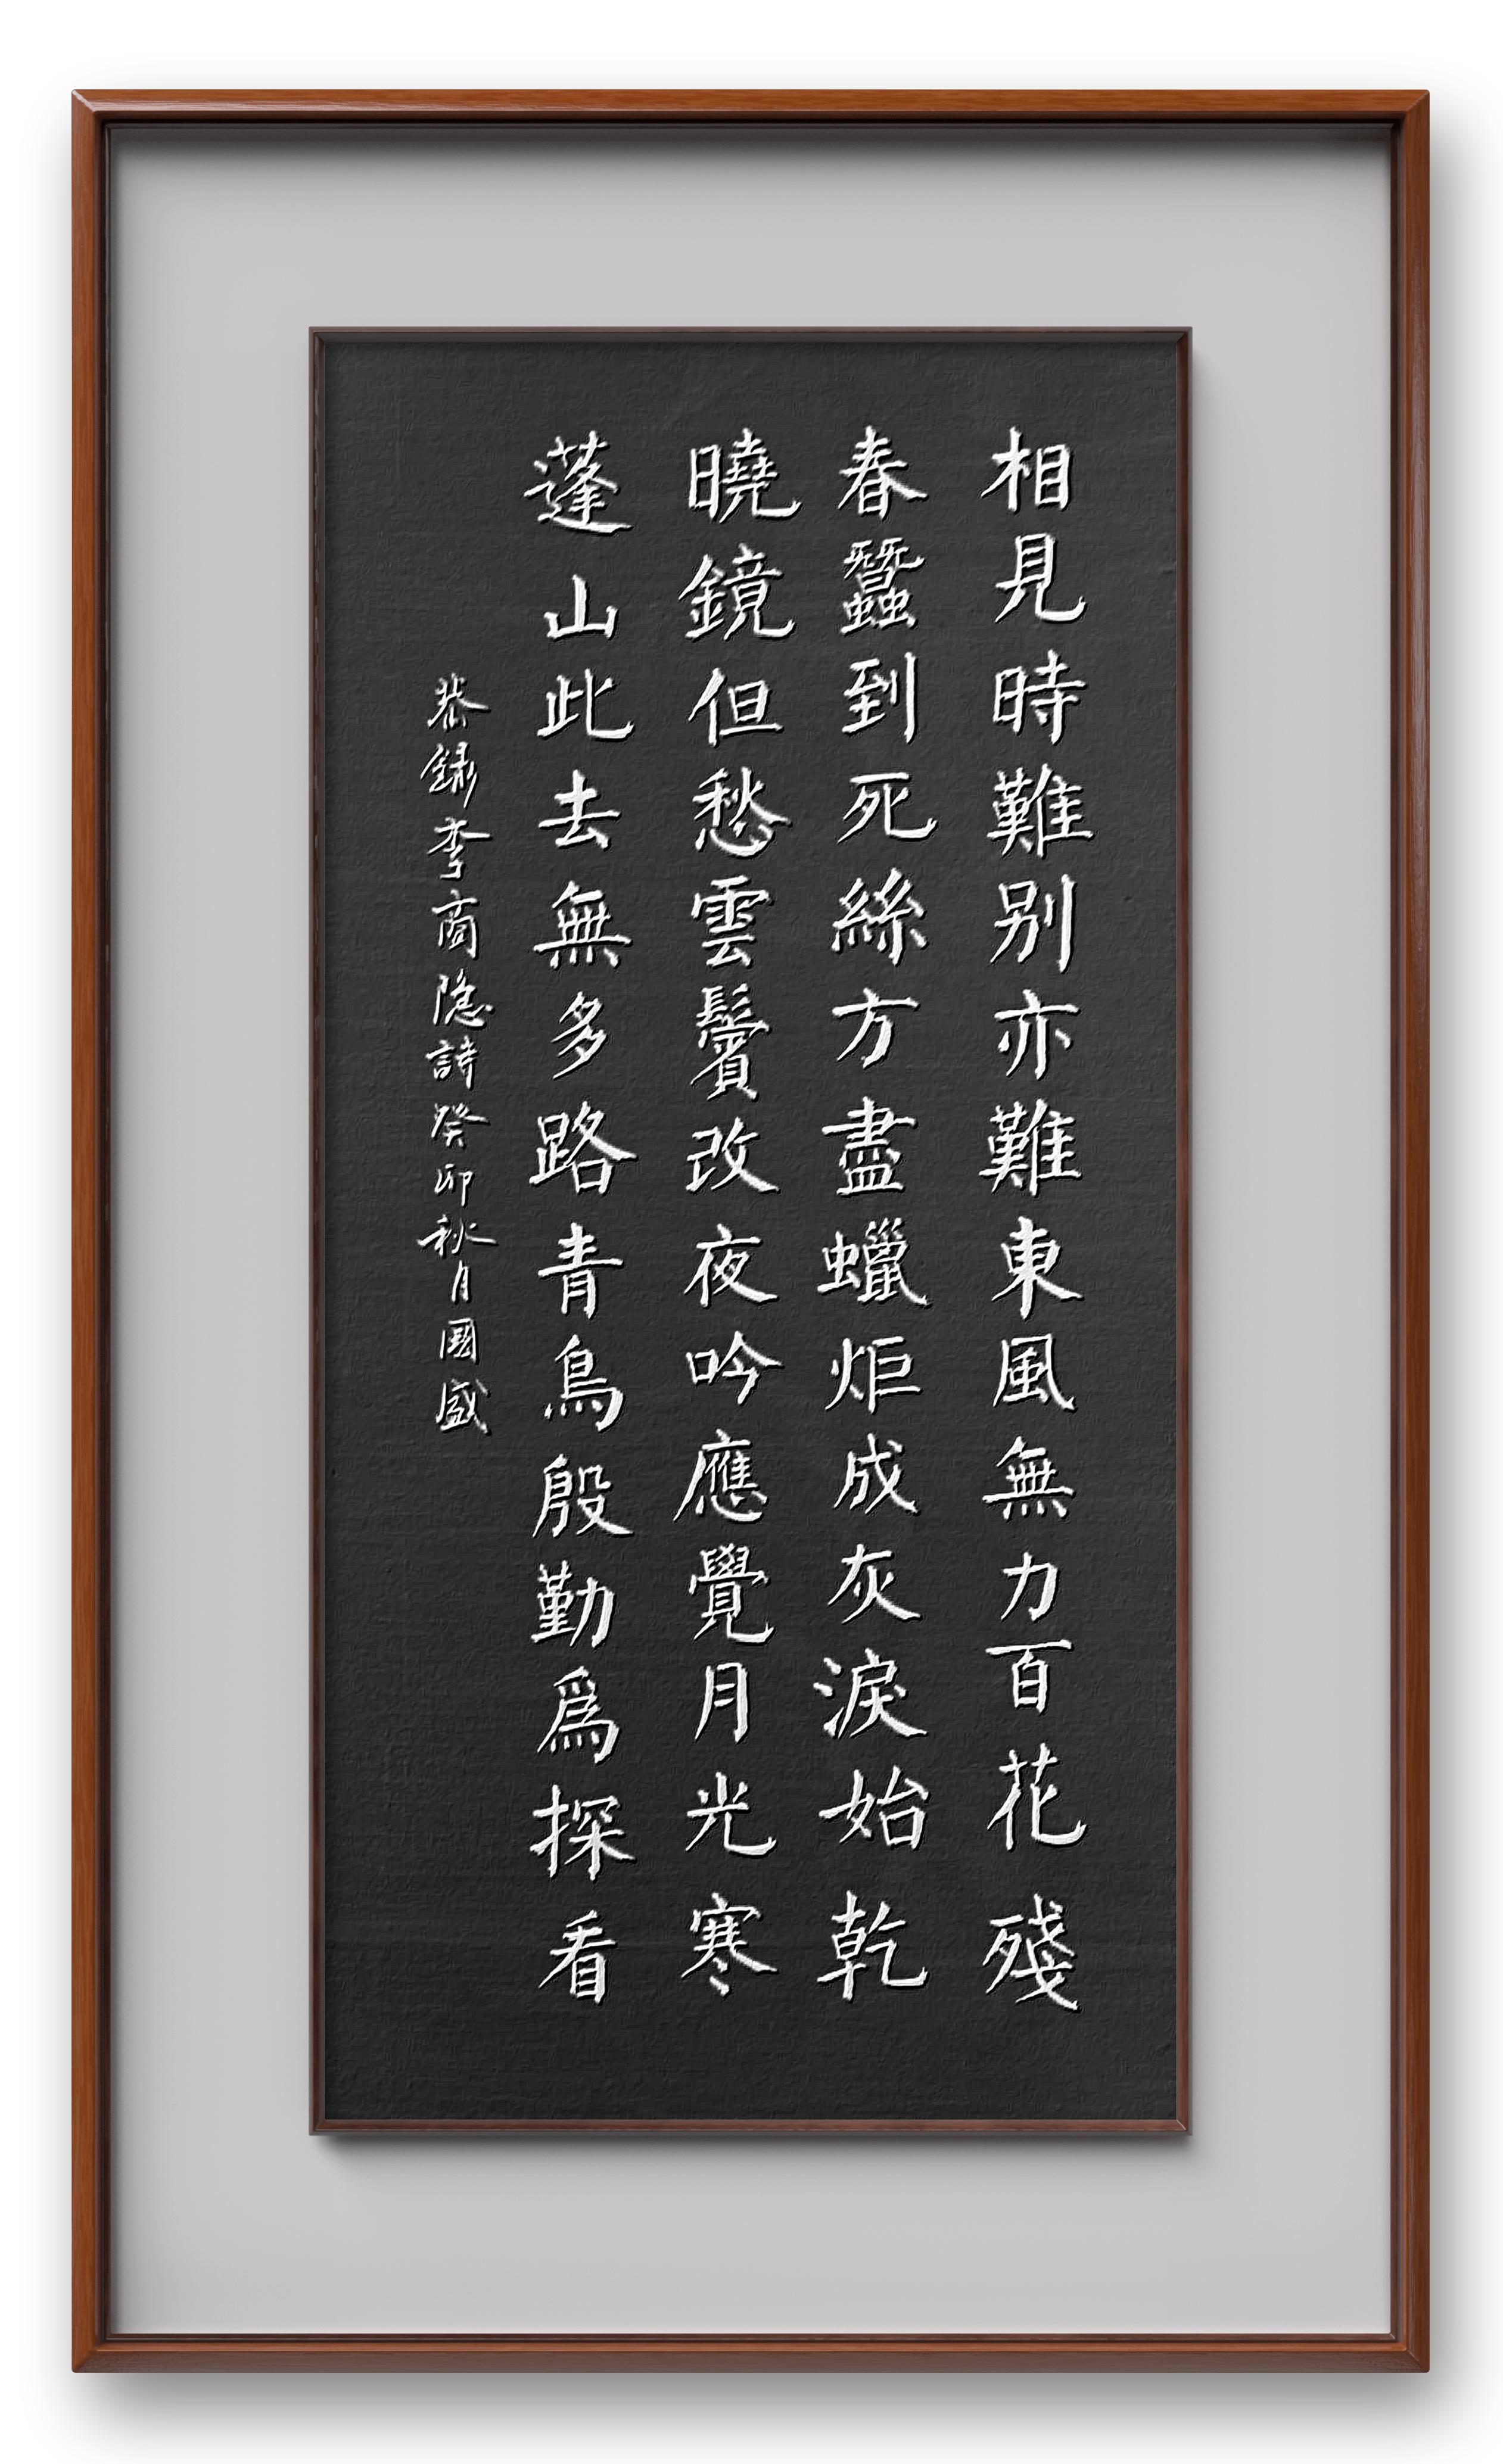 相見時難别亦難東風無力百花殘
春蠶到死絲方盡蠟炬成灰淚始乾
曉鏡但愁雲鬢改夜吟應覺月光寒
蓬山此去無多路青鳥殷勤爲探看
恭錄李商隐詩癸卯秋月國盛